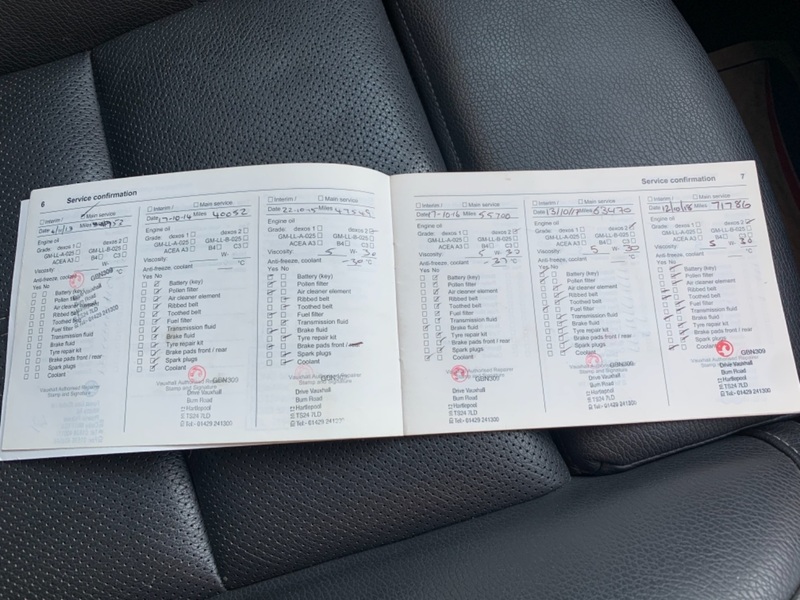 6 Service confirmation
Interim / Main service
Date Miles
Engine oil
Grade: dexos 1 dexos 2
GM-LL-A-025 GM-LL-B-025
ACEA A3 B4 C3
Viscosity: W-
Anti-freeze, coolant °C
Yes No
Battery (key)
Pollen filter
Air cleaner element
Ribbed belt
Toothed belt
Fuel filter
Transmission fluid
Brake fluid
Tyre repair kit
Brake pads front / rear
Spark plugs
Coolant
Vauxhall Authorised Repairer
Stamp and Signature
GBN309
Interim / Main service
Date 17-10-14 Miles 40052
Engine oil
Grade: dexos 1 dexos 2
GM-LL-A-025 GM-LL-B-025
ACEA A3 B4 C3
Viscosity: W-
Anti-freeze, coolant °C
Yes No
Battery (key)
Pollen filter
Air cleaner element
Ribbed belt
Toothed belt
Fuel filter
Transmission fluid
Brake fluid
Tyre repair kit
Brake pads front / rear
Spark plugs
Coolant
Vauxhall Authorised Repairer
Stamp and Signature
GBN309
Drive Vauxhall
Burn Road
Hartlepool
TS24 7LD
Tel:- 01429 241300
Interim / Main service
Date 22-10-15 Miles
Engine oil
Grade: dexos 1 dexos 2
GM-LL-A-025 GM-LL-B-025
ACEA A3 B4 C3
Viscosity: 5 W- 30
Anti-freeze, coolant -30 °C
Yes No
Battery (key)
Pollen filter
Air cleaner element
Ribbed belt
Toothed belt
Fuel filter
Transmission fluid
Brake fluid
Tyre repair kit
Brake pads front / rear
Spark plugs
Coolant
Vauxhall Authorised Repairer
Stamp and Signature
Drive Vauxhall
Burn Road
Hartlepool
TS24 7LD
Tel:- 01429 241300
Service confirmation 7
Interim / Main service
Date Miles 55700
Engine oil
Grade: dexos 1 dexos 2
GM-LL-A-025 GM-LL-B-025
ACEA A3 B4 C3
Viscosity: 5 W- 30
Anti-freeze, coolant -37 °C
Yes No
Battery (key)
Pollen filter
Air cleaner element
Ribbed belt
Toothed belt
Fuel filter
Transmission fluid
Brake fluid
Tyre repair kit
Brake pads front / rear
Spark plugs
Coolant
Vauxhall Authorised Repairer
Stamp and Signature
GBN309
Drive Vauxhall
Burn Road
Hartlepool
TS24 7LD
Tel:- 01429 241300
Interim / Main service
Date 13/10/17 Miles 63470
Engine oil
Grade: dexos 1 dexos 2
GM-LL-A-025 GM-LL-B-025
ACEA A3 B4 C3
Viscosity: 5 W- 30
Anti-freeze, coolant °C
Yes No
Battery (key)
Pollen filter
Air cleaner element
Ribbed belt
Toothed belt
Fuel filter
Transmission fluid
Brake fluid
Tyre repair kit
Brake pads front / rear
Spark plugs
Coolant
Vauxhall Authorised Repairer
Stamp and Signature
GBN309
Drive Vauxhall
Burn Road
Hartlepool
TS24 7LD
Tel:- 01429 241300
Interim / Main service
Date 12/10/18 Miles 71786
Engine oil
Grade: dexos 1 dexos 2
GM-LL-A-025 GM-LL-B-025
ACEA A3 B4 C3
Viscosity: 5 W- 30
Anti-freeze, coolant °C
Yes No
Battery (key)
Pollen filter
Air cleaner element
Ribbed belt
Toothed belt
Fuel filter
Transmission fluid
Brake fluid
Tyre repair kit
Brake pads front / rear
Spark plugs
Coolant
Vauxhall Authorised Repairer
Stamp and Signature
GBN309
Drive Vauxhall
Burn Road
Hartlepool
TS24 7LD
Tel:- 01429 241300